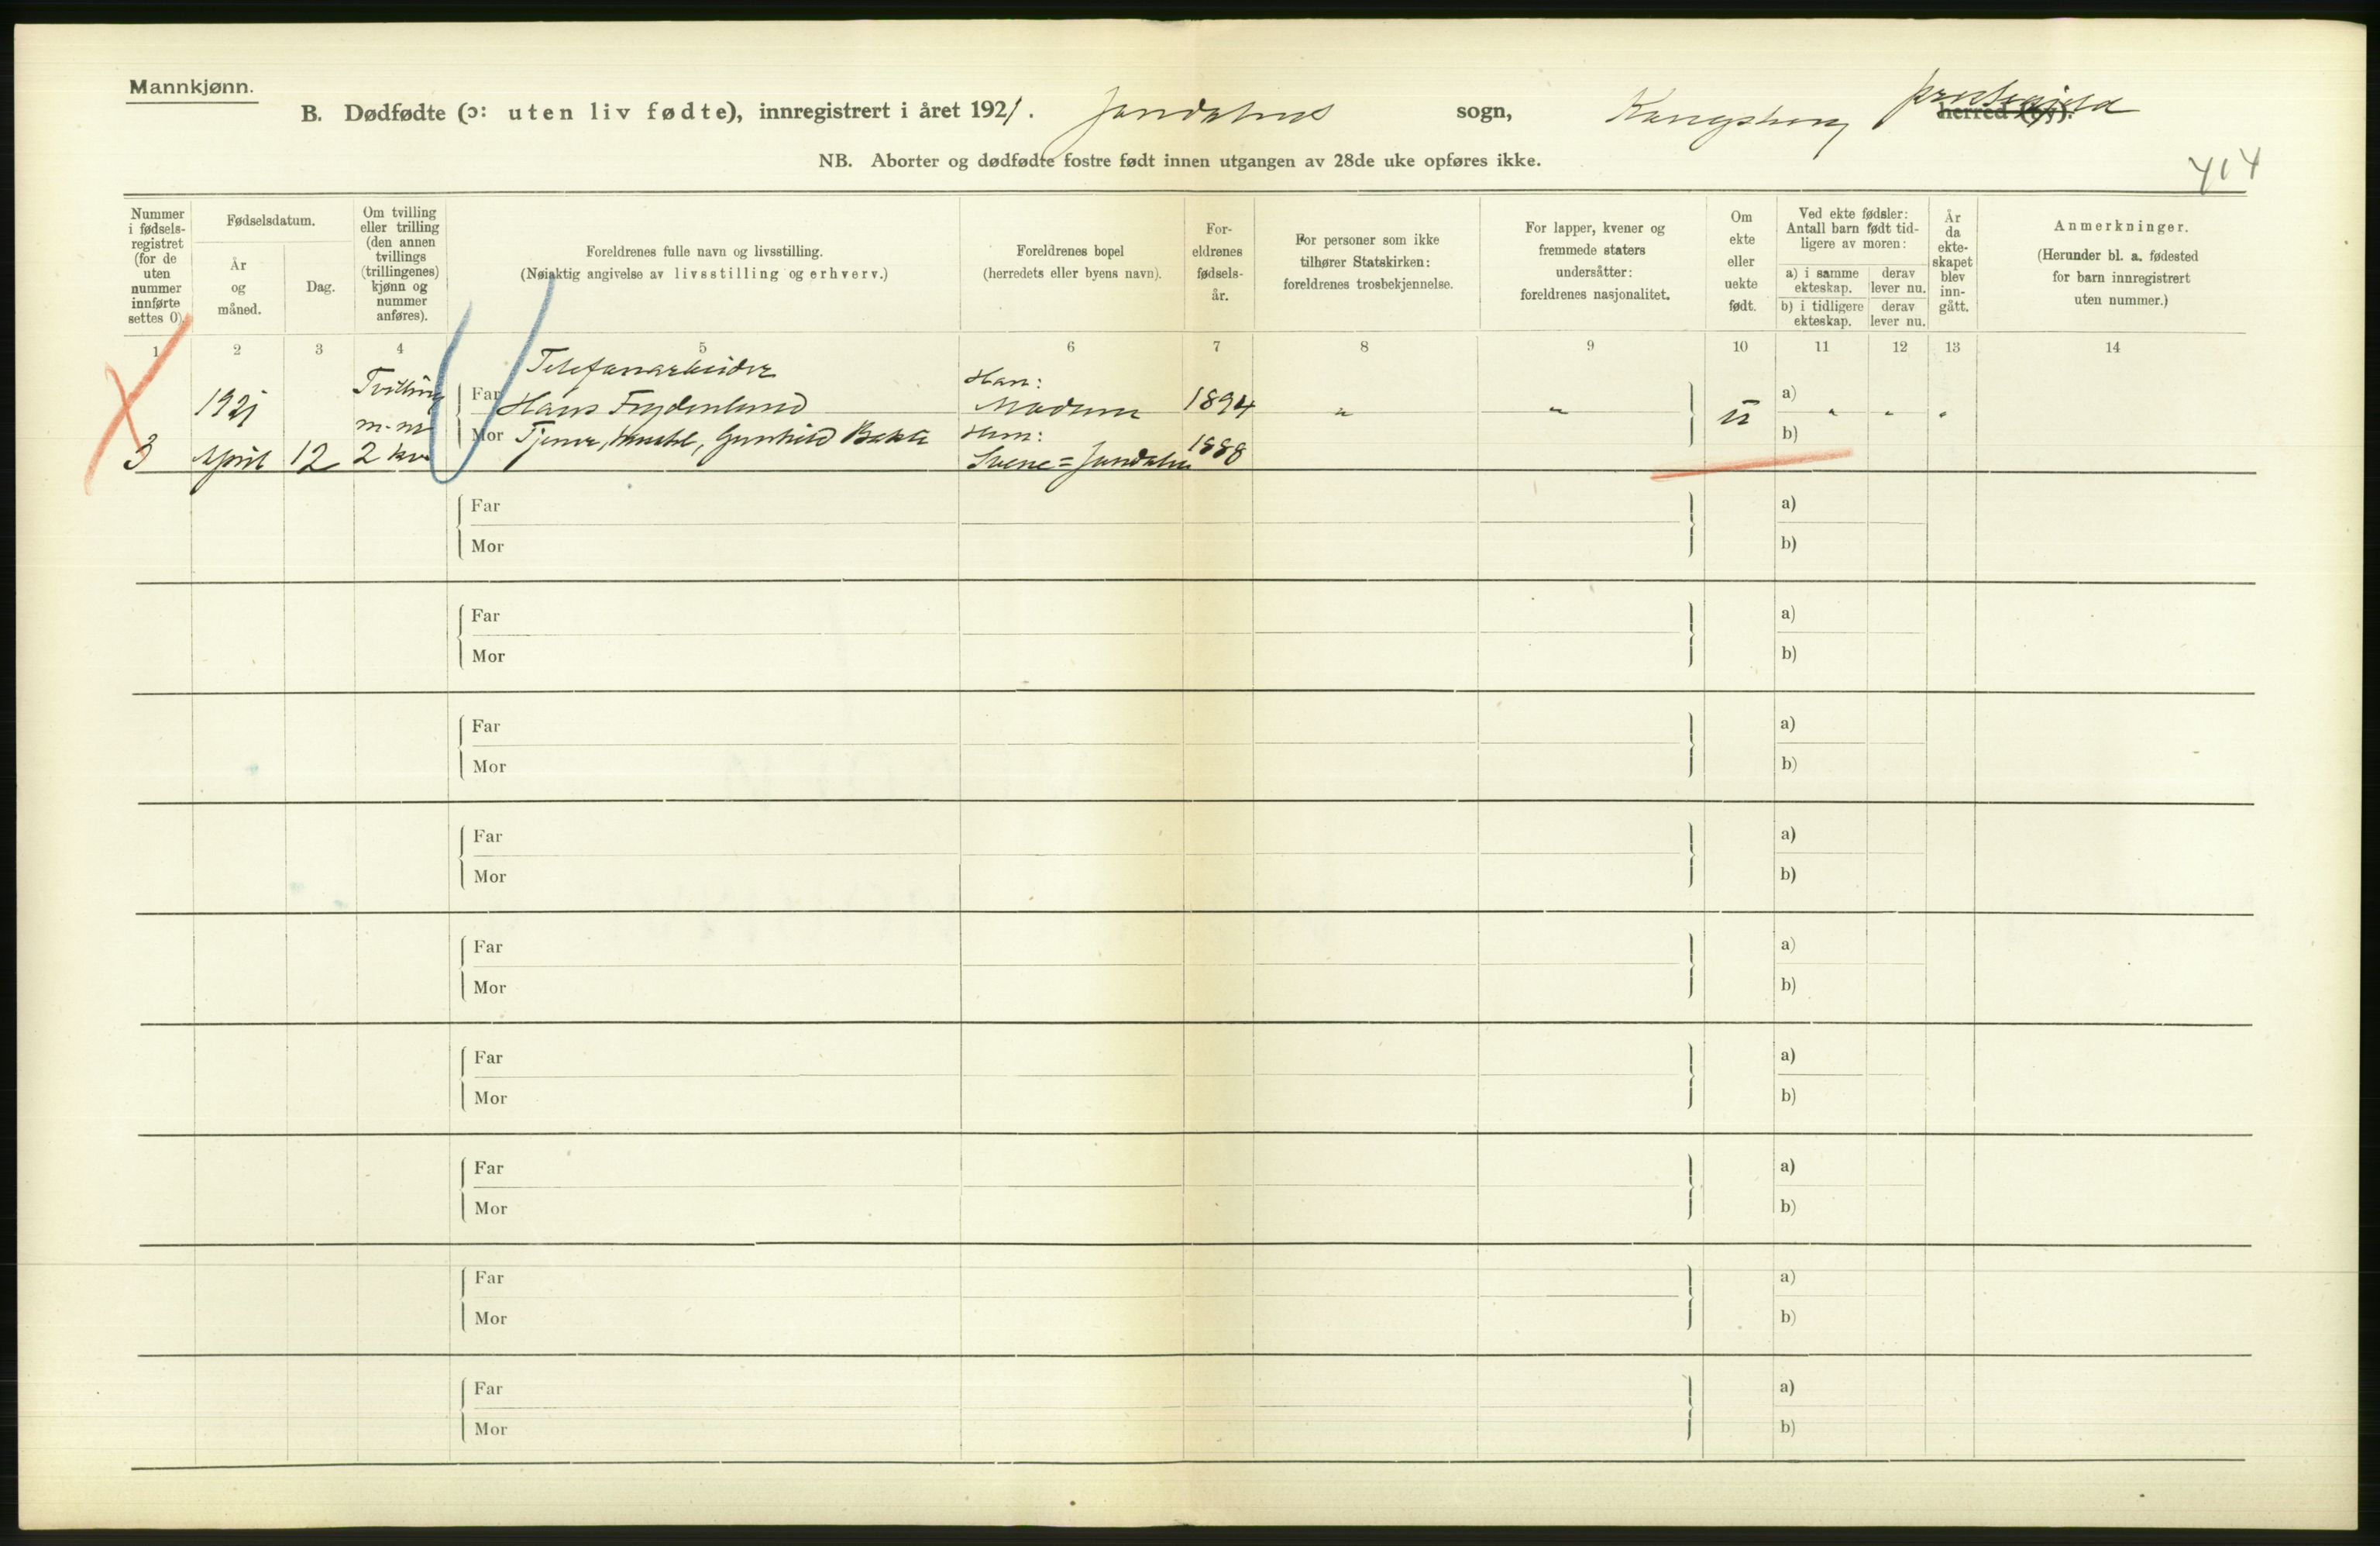 Mannkjønn.
B. Dødfødte (ɔ: uten liv fødte), innregistrert i året 1921. Jondalens sogn, Kongsberg prestegjeld herred (by).
NB. Aborter og dødfødte fostre født innen utgangen av 28de uke opføres ikke.
414
Nummer i fødsels-registret (for de uten nummer innførte settes 0).
Fødselsdatum.
År og måned.
Dag.
Om tvilling eller trilling (den annen tvillings (trillingenes) kjønn og nummer anføres).
Foreldrenes fulle navn og livsstilling.
(Nøiaktig angivelse av livsstilling og erhverv.)
Foreldrenes bopel
(herredets eller byens navn).
For-eldrenes fødsels-år.
For personer som ikke tilhører Statskirken: foreldrenes trosbekjennelse.
For lapper, kvener og fremmede staters undersåtter: foreldrenes nasjonalitet.
Om ekte eller uekte født.
Ved ekte fødsler: Antall barn født tid-ligere av moren:
a) i samme ekteskap.
derav lever nu.
b) i tidligere ekteskap.
derav lever nu.
År da ekte-skapet blev inn-gått.
Anmerkninger.
(Herunder bl. a. fødested for barn innregistrert uten nummer.)
1 2 3 4 5 6 7 8 9 10 11 12 13 14
Telefonarbeider
Tvilling
Han:
1921
Far Hans Frydenlund
Modum
1894
" "
u
a) " " "
m. nr
Mor Tjener, Gunhild Bakke
Hun:
1888
b)
3 April 12 2 kv.
Svene = Jondalen
Far a)
Mor b)
Far a)
Mor b)
Far a)
Mor b)
Far a)
Mor b)
Far a)
Mor b)
Far a)
Mor b)
Far a)
Mor b)
Far a)
Mor b)
Far a)
Mor b)